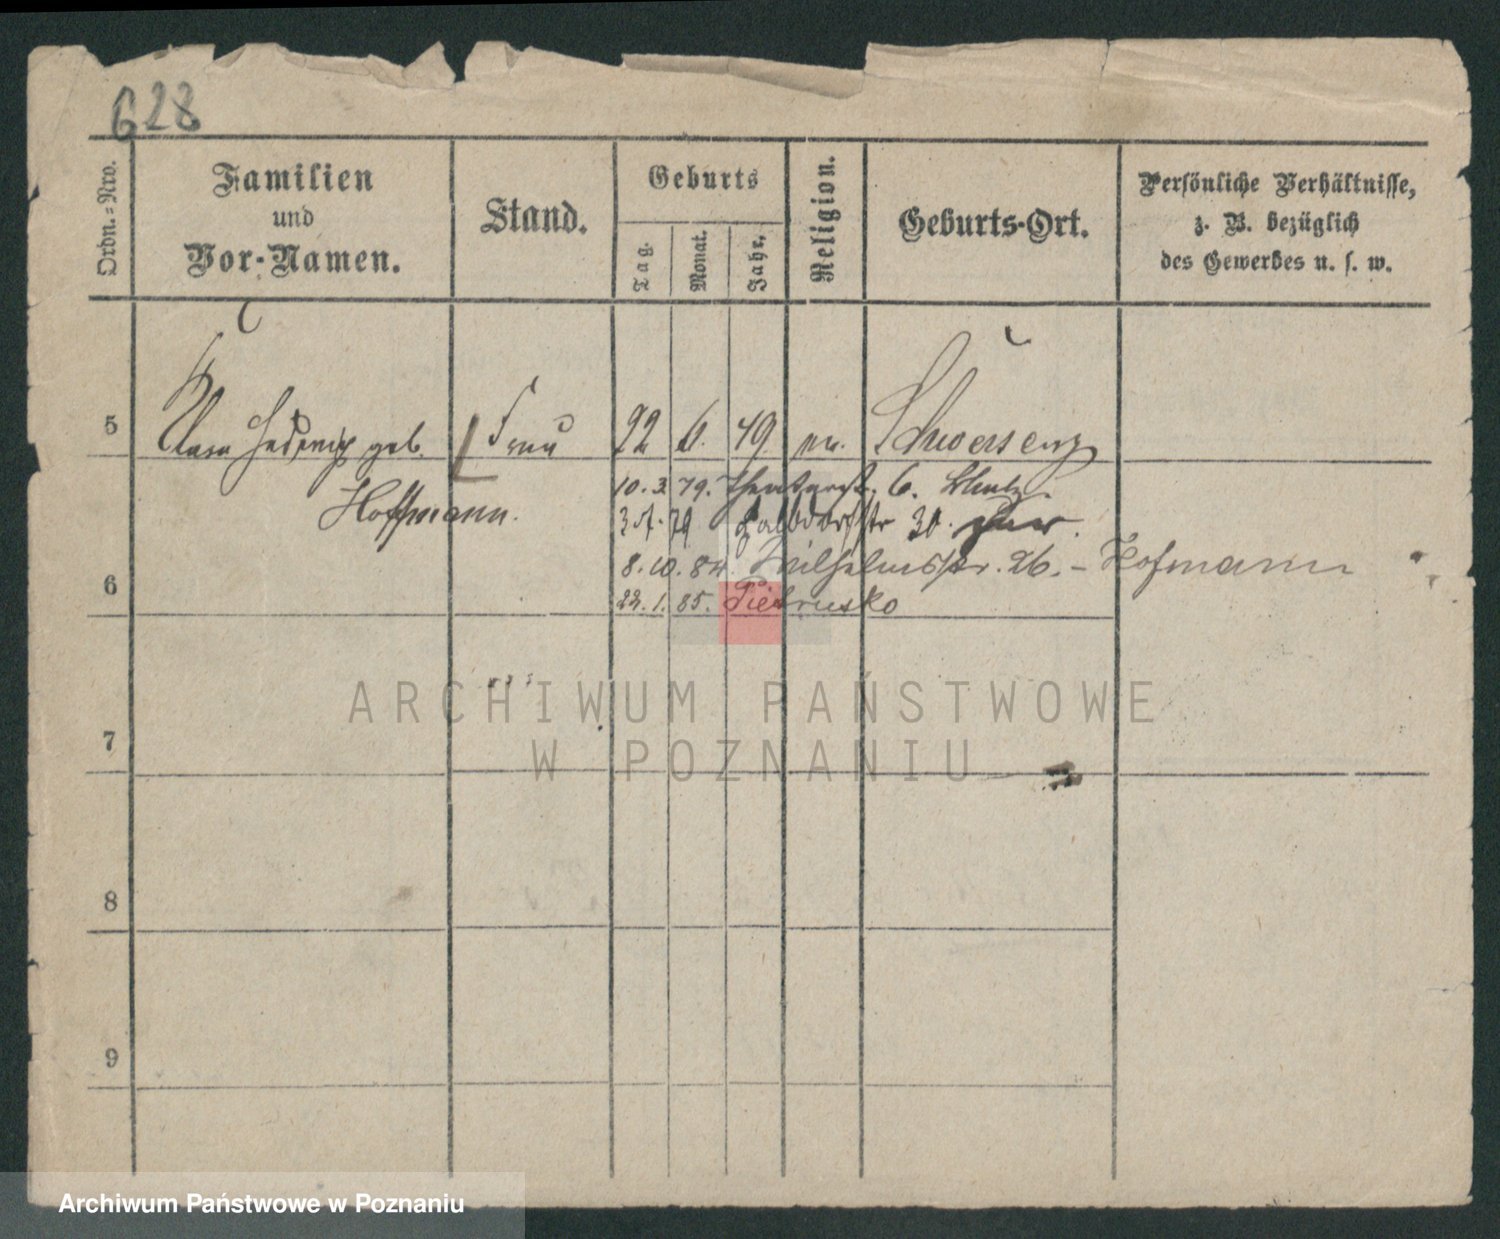 628
Ordn.=Nro.
Familien
und
Vor-Namen.
Stand.
Geburts
Tag.
Monat.
Jahr.
Religion.
Geburts-Ort.
Persönliche Verhältnisse,
z. B. bezüglich
des Gewerbes u. s. w.
5 Clara Hedwig geb. Frau 22 6. 49. ev. Schwersenz
Hoffmann.
10. 3. 79. 6.
79 Halbdorfstr 30.
8. 10. 84. Wilhelmstr. 26. – Hofmann
6
22. 1. 85. Pietrusko
ARCHIWUM PAŃSTWOWE
7
W POZNANIU
8
9
Archiwum Państwowe w Poznaniu